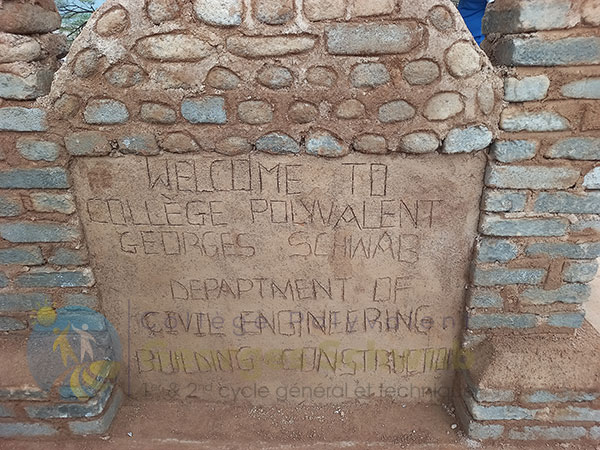 WELCOME TO
COLLÈGE POLYVALENT
GEORGES SCHWAB
DEPAPTMENT OF
CIVIL ENGINEERING
BUILDING CONSTRUCTION
1er & 2nd cycle général et technique